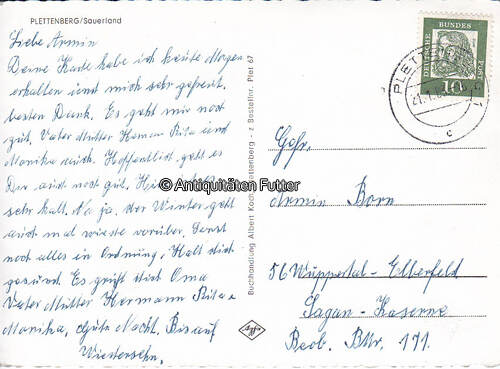 PLETTENBERG/Sauerland
Liebe Armin
Deine Karte habe ich heute Morgen
erhalten und mich sehr gefreut.
besten Dank. Es geht mir noch
gut. Vater Mutter Herman Rita und
Monika auch. Hoffentlich geht es
Dir auch noch gut. Hier ist es
sehr kalt. Na ja. der Winter geht
auch mal wieder vorüber. Sonst
noch alles in Ordnung. Halt dich
gesund. Es grüßt dich Oma
Vater Mutter Hermann Rita u
Monika, Gute Nacht. Bis auf
Wiedersehn.
© Antiquitäten Futter
Buchhandlung Albert Koch, Plettenberg - z. Bestellnr. Plet 67
DEUTSCHE BUNDESPOST
10
PLETT
21.1.
c
Gefr.
Armin Born
56 Wuppertal-Elberfeld
Sagan-Kaserne
Beob. Bttr. 171.